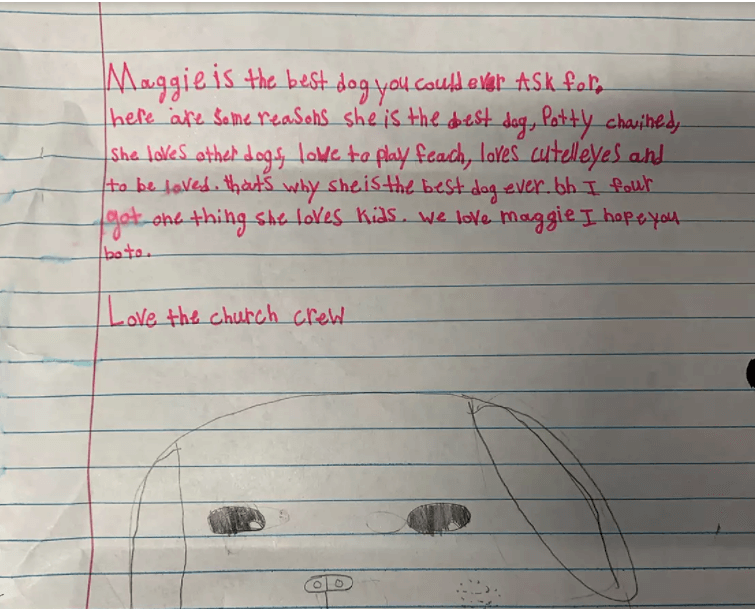 Maggie is the best dog you could ever ASK for.
here are some reasons she is the best dog, Potty chained,
she loves other dogs, love to play feach, loves cutelleyes and
to be loved. that's why she is the best dog ever. bh I four
got one thing she loves kids. we love maggie I hope you
boto.
Love the church crew